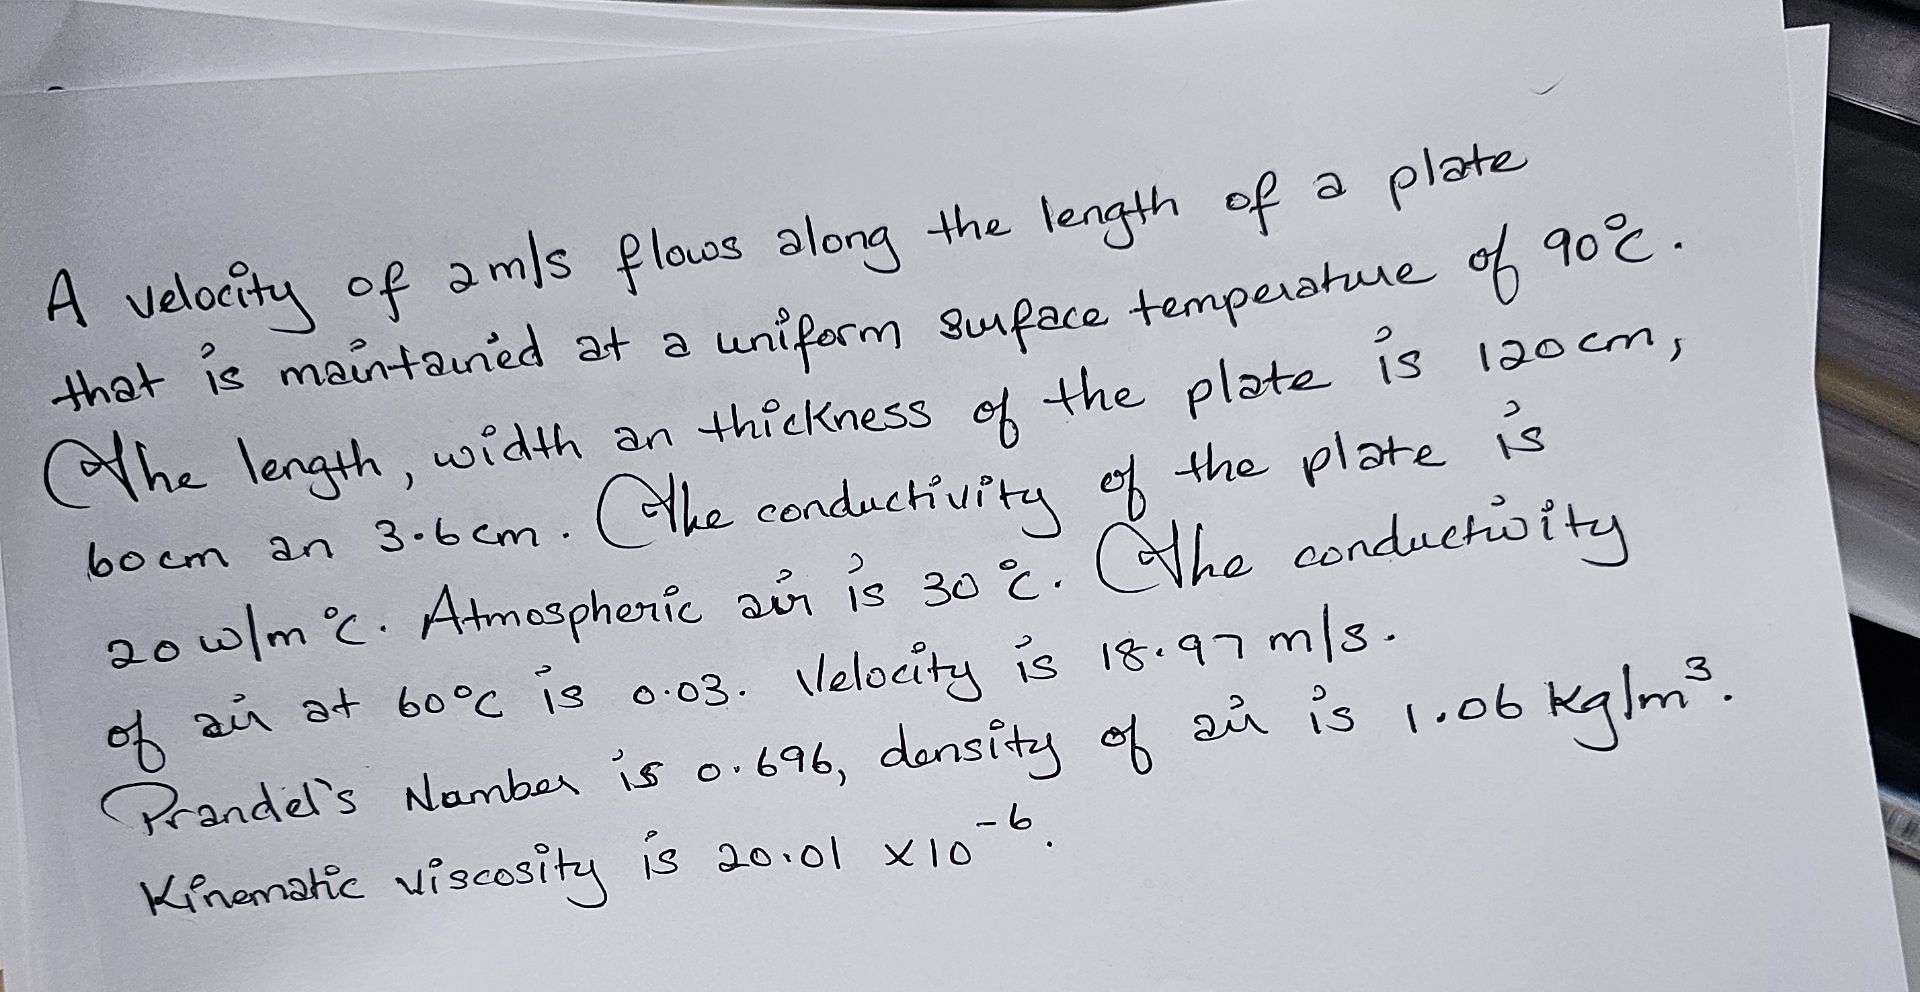 A velocity of 2m/s flows along the length of a plate
that is maintained at a uniform surface temperature of 90°c.
The length, width an thickness of the plate is 120cm,
60cm an 3.6cm. The conductivity of the plate is
20w/m°c. Atmospheric air is 30°c. The conductivity
of air at 60°c is 0.03. Velocity is 18.97 m/s.
Prandel's Number is 0.696, density of air is 1.06 kg/m³.
Kinematic viscosity is 20.01 ×10⁻⁶.